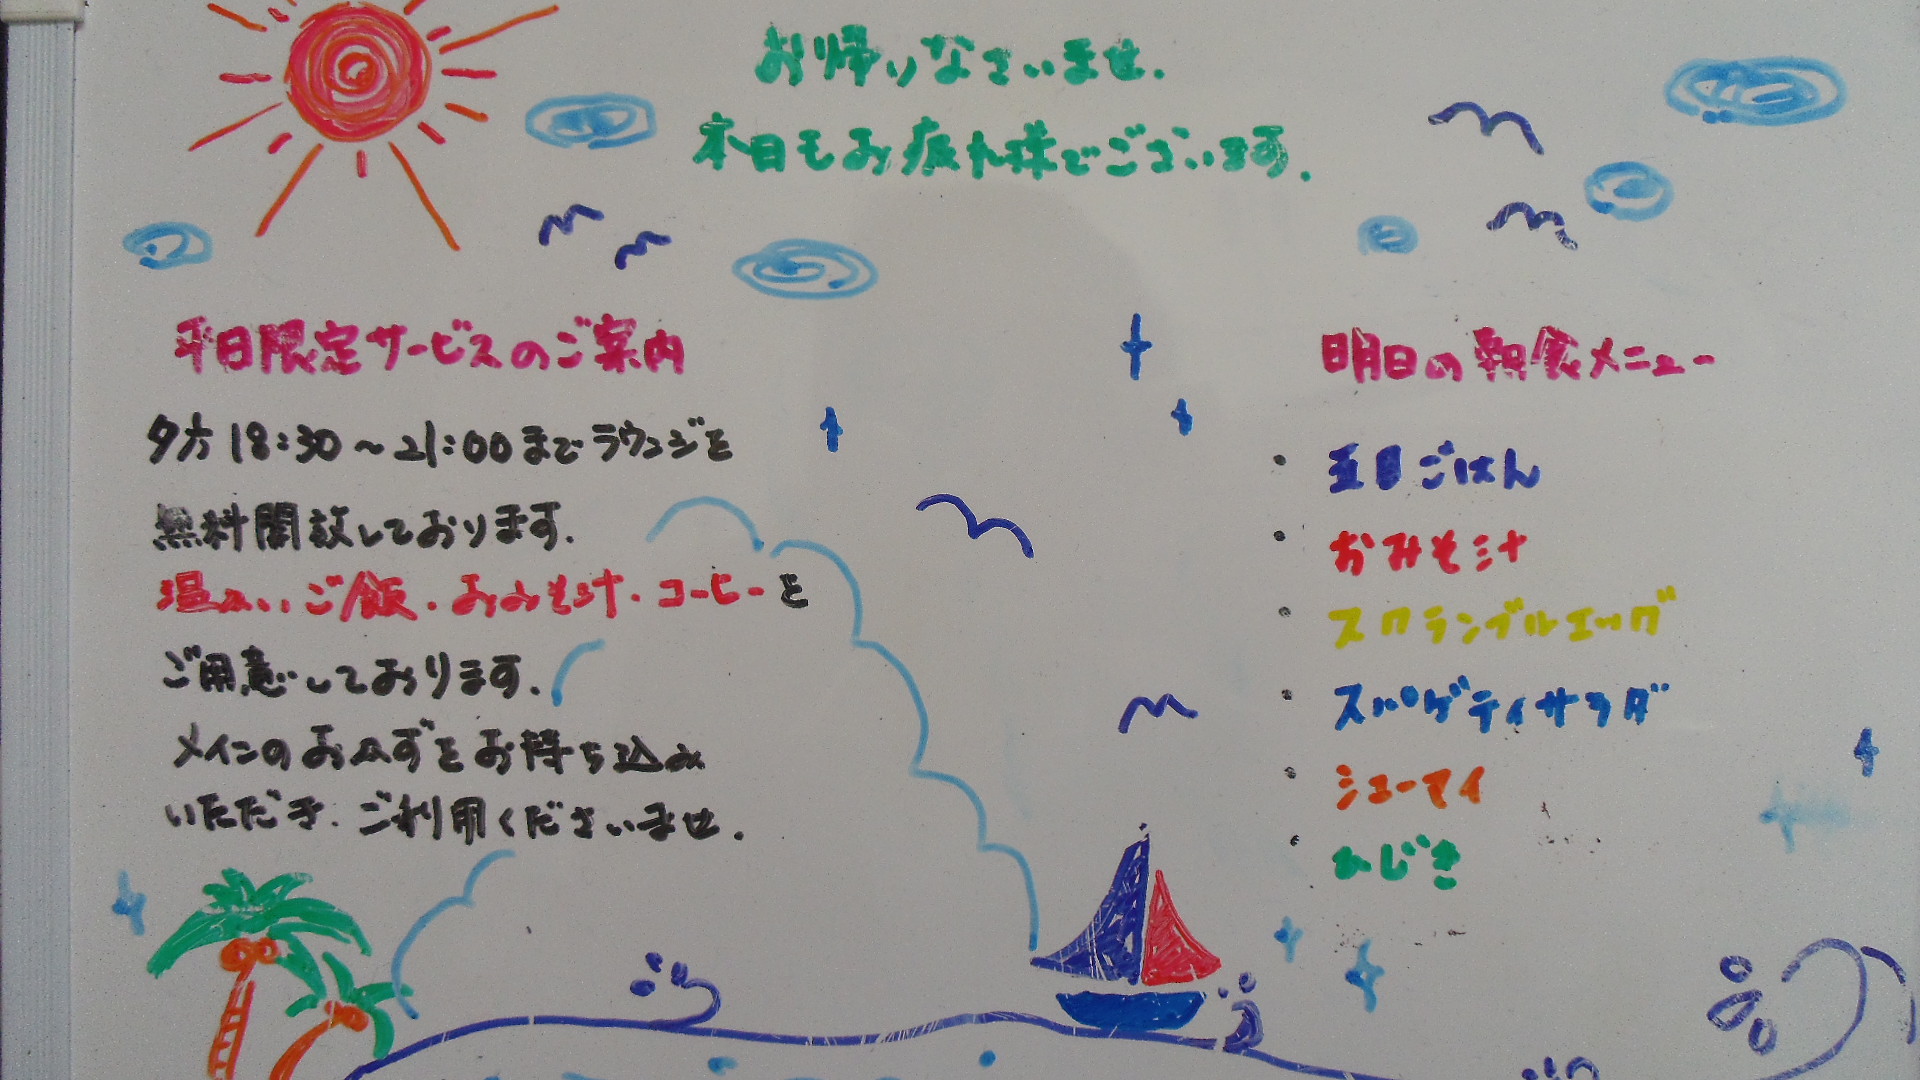 お帰りなさいませ.
本日もお疲れ様でございます.
平日限定サービスのご案内
夕方18:30～21:00までラウンジを
無料開放しております.
温かいご飯・おみそ汁・コーヒーを
ご用意しております.
メインのおかずをお持ち込み
いただき.ご利用くださいませ.
明日の朝食メニュー
・五目ごはん
・おみそ汁
・スクランブルエッグ
・スパゲティサラダ
・シューマイ
・ひじき